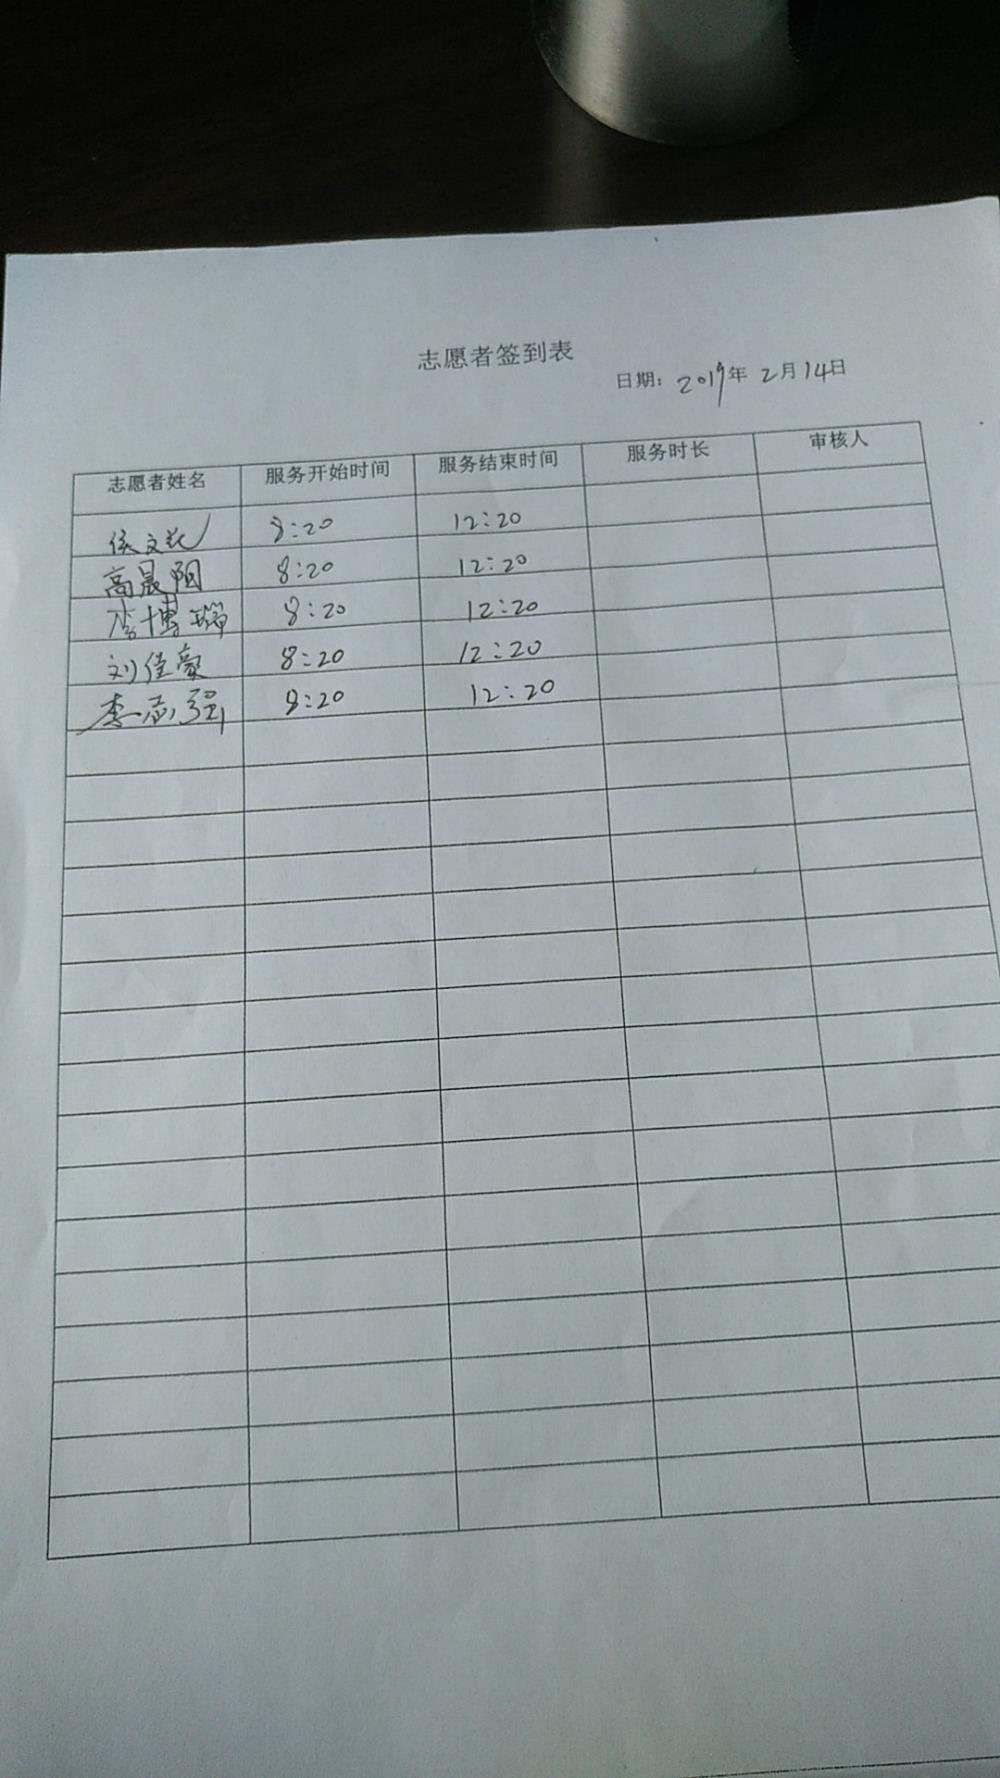 志愿者签到表
日期：2019年2月14日
志愿者姓名 服务开始时间 服务结束时间 服务时长 审核人
侯文 8:20 12:20
高晟阳 8:20 12:20
李博瑞 8:20 12:20
刘佳豪 8:20 12:20
李志强 8:20 12:20